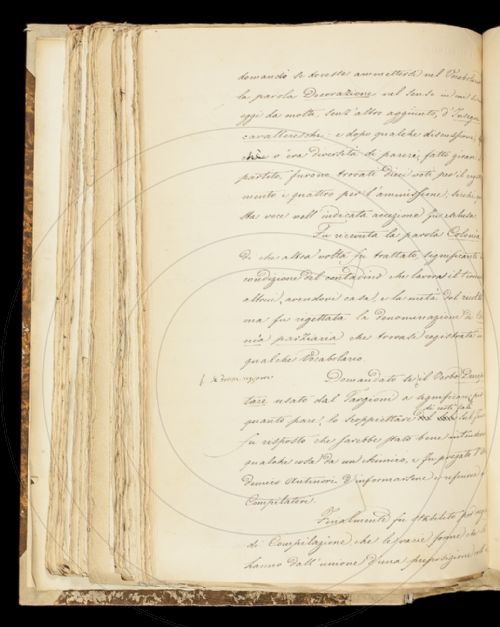 domandò se dovesse ammettersi nel Vocabolario
la parola Decorazione nel senso in cui
oggi da molti, senz'altro aggiunto, d'Insegne
cavalleresche: e dopo qualche discussione,
v'era diversità di parere, fatto girare
partito, furono trovati dieci voti per il
mento e quattro per l'ammissione, sicché
sta voce nell'indicata accezione fu esclusa.
Fu ricevuta la parola Colonia
di che altra volta fu trattato, significante
condizione del contadino che lavora il terreno
altrui, avendovi casa, e la metà del
ma fu rigettata la denominazione di
nia parziaria che trovasi registrata in
qualche Vocabolario.
Domandato se il Verbo
tare usato dal Targioni a significare
quanto pare, lo scoppiettare
di certi sali
fu risposto che sarebbe stato bene
qualche cosa da un chimico, e fu pregato l'
demico Antinori d'informarsene e
Compilatori.
Finalmente fu stabilito per
di Compilazione che le varie forme che
hanno dall'unione d'una preposizione